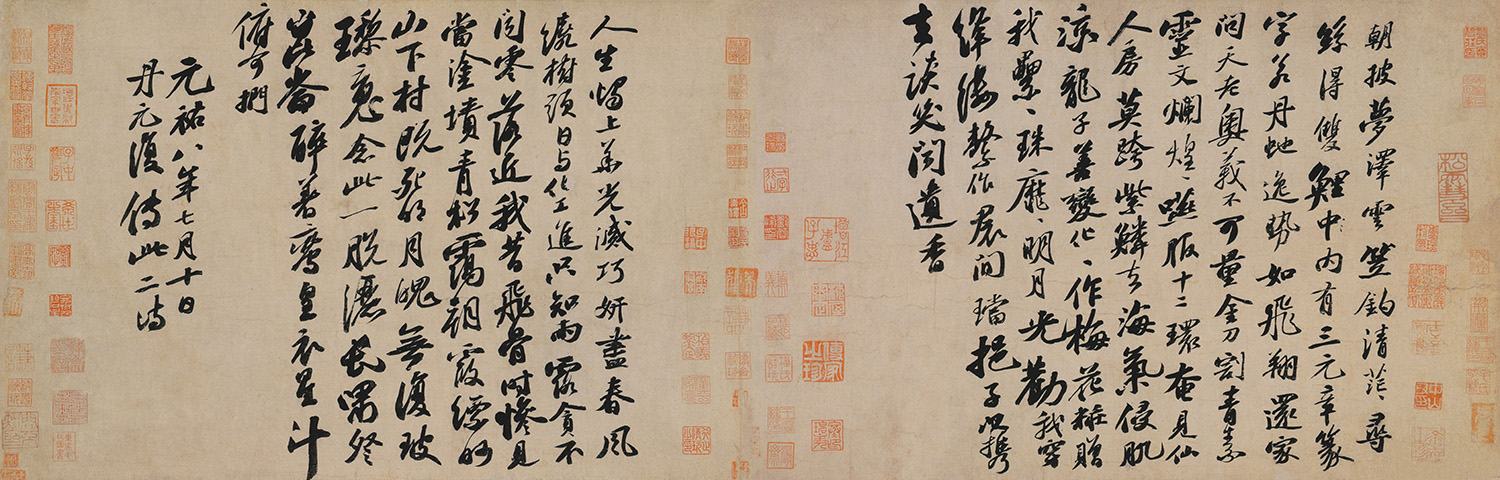 朝披夢澤雲笠釣清茫〻尋
絲得雙鯉中内有三元章篆
字若丹虵逸勢如飛翔還家
問天老奧義不可量金刀割青素
靈文爛煌〻嚥服十二環奄見仙
人房莫跨紫鱗去海氣侵肌
涼龍子善變化〻作梅花糚贈
我纍〻珠靡〻明月光勸我穿
絳縷繫作裙間璫挹子以攜
去談笑聞遺香
人生燭上華光滅巧妍盡春風
繞樹頭日与化工進只知雨露貪不
聞零落近我昔飛骨時慘見
當塗墳青松靄朝霞縹緲
山下村既死明月魄無復玻
瓈魂念此一脫灑長嘯祭
崑崙醉著鸞皇衣星斗
俯可捫
元祐八年七月十日
丹元復傳此二詩